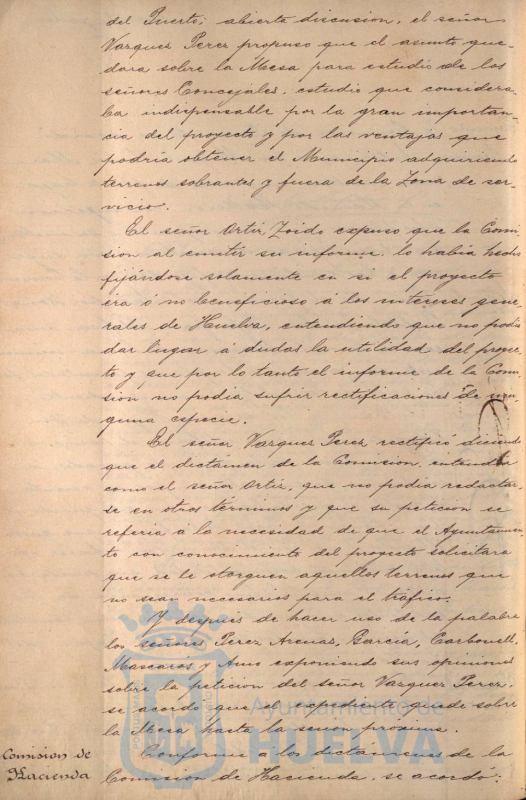 del Puerto; abierta discusion, el señor
Vazquez Perez propuso que el asunto que-
dara sobre la Mesa para estudio de los
señores Concejales, estudio que considera-
ba indispensable por la gran importan-
cia del proyecto y por las ventajas que
podria obtener el Municipio adquiriendo
terrenos sobrantes y fuera de la Zona de ser-
vicio.
El señor Ortiz Zoido expuso que la Comi
sion al emitir su informe, lo habia hecho
fijándose solamente en si el proyecto
era ó no beneficioso á los intereses gene-
rales de Huelva, entendiendo que no podia
dar lugar á dudas la utilidad del proyec-
to y que por lo tanto el informe de la Comi
sion no podia sufrir rectificaciones de nin-
guna especie.
El señor Vazquez Perez rectificó diciendo
que el dictámen de la Comision, entendia
como el señor Ortiz, que no podia redactar-
se en otros términos y que su peticion se
referia á la necesidad de que el Ayuntamien-
to con conocimiento del proyecto solicitara
que se le otorguen aquellos terrenos que
no sean necesarios para el tráfico.
Y después de hacer uso de la palabra
los señores Perez Arenas, García, Carbonell,
Mascarós y Amo exponiendo sus opiniones
sobre la peticion del señor Vazquez Perez,
se acordó que el expediente quede sobre
la Mesa hasta la sesion próxima.
Comision de
Hacienda
Conforme á los dictámenes de la
Comision de Hacienda, se acordó:
Ayuntamiento de
HUELVA